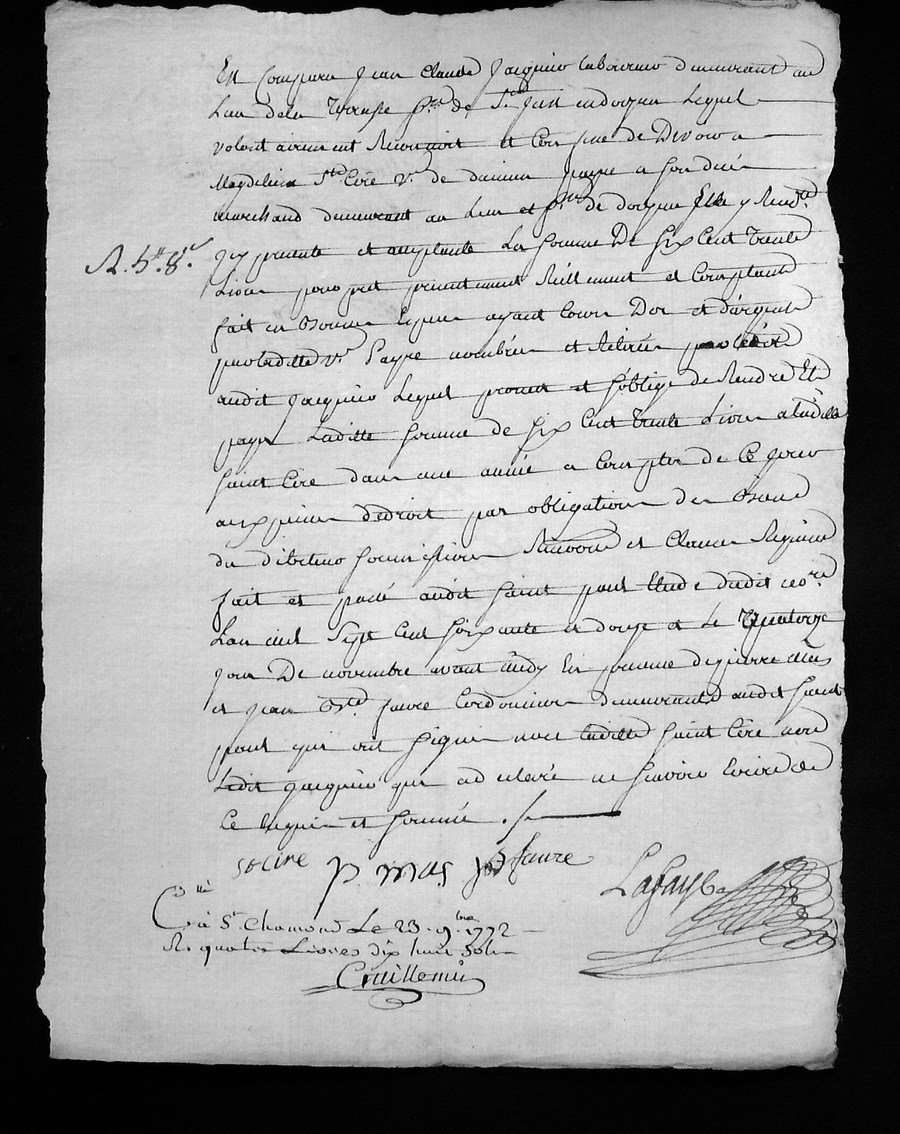 Est Comparu Jean Claude Jacquier laboureur demeurant au
Lieu dela Terrasse psse de St Just endoizieu Lequel
volontairement Reconnoit et Confesse de Devoir a
Magdeleine St Ciré Ve de damien payre a son decés
marchand demeurant au Lieu et psse de doizieu Elle y Residte
Icy presente et acceptante La somme De Six Cent Trente
Livres pour pret presentement Réellement et Comptant
fait en Bonnes Especes ayant Cours Dor et d'argent
par laditte Ve Payre nombrées et Retirées par ledit
audit Jacquier Lequel promet et soblige de Rendre Et
payer Laditte somme de six Cent Trente Livres a laditte
Saint Ciré dans une année a Compter de Ce jour
aux peines de droit par obligation de Biens
du debiteur soumissions Renvoie et Clauses Requises
fait et passé audit Saint paul Etude dudit nore
Lan mil Sept Cent soixante et douze et Le Quatorze
jour De novembre avant midy En presence de pierre Mas
et jean Bte faure Cordonnier demeurants audit Saint
paul qui ont signé avec laditte Saint Ciré non
Ledit jacquier qui a declaré ne sçavoir Ecrire de
Ce Enquis et sommé ./.
R. 5s. 8d.
st cire p mas jB faure
Lafay
Cllé à St Chamond Le 23 9bre 1772
R. quatre Livres dix huit sols